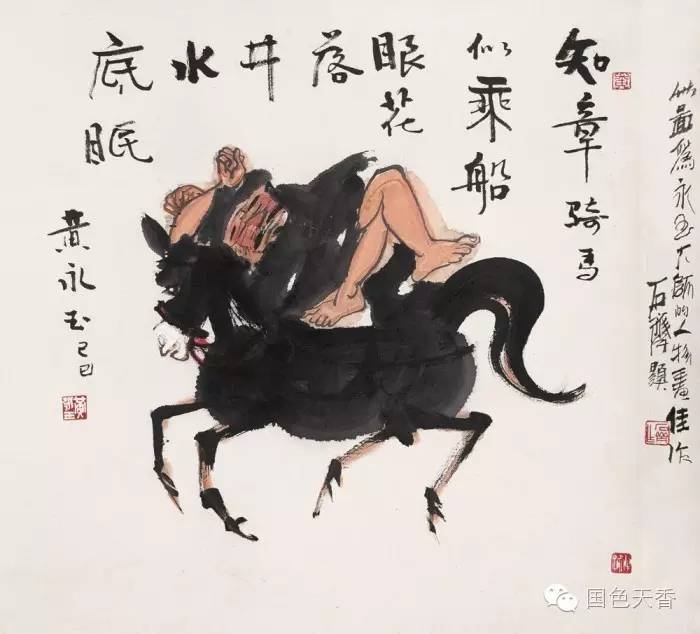 知章骑马
似乘船
眼花
落
井
水
底眠
黄永玉己巳
此畫為永玉大師的人物畫佳作
石齊題
国色天香